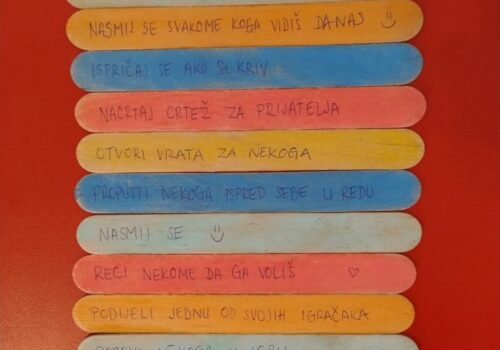 NASMIJ SE SVAKOME KOGA VIDIŠ DANAS
ISPRIČAJ SE AKO SI KRIV
NACRTAJ CRTEŽ ZA PRIJATELJA
OTVORI VRATA ZA NEKOGA
PROPUSTI NEKOGA ISPRED SEBE U REDU
NASMIJ SE
RECI NEKOME DA GA VOLIŠ
PODIJELI JEDNU OD SVOJIH IGRAČAKA
NEKOGA U